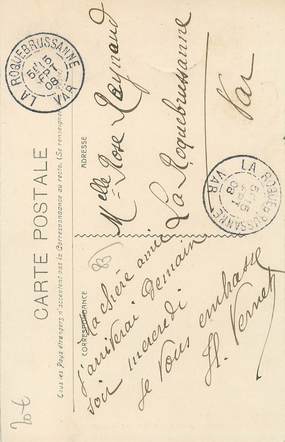 CARTE POSTALE
Tous les Pays étrangers n'acceptent pas la Correspondance au recto. (Se renseigner
CORRESPONDANCE
ADRESSE
Ma chère amie
J'arriverai demain
soir mercredi
Je vous embrasse
H. Vernet
Melle Rose Raynaud
La Roquebrussanne
Var
LA ROQUEBRUSSANNE
08
VAR
LA ROQUEBRUSSANNE
08
VAR